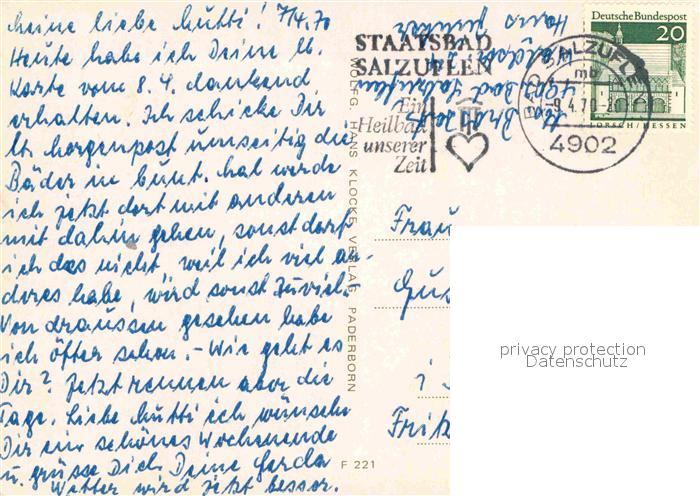 meine liebe Mutti! 9/4.70
Heute habe ich Deine lb.
Karte vom 8.4. dankend
erhalten. Ich schicke Dir
lb. Morgenpost umseitig die
Bäder in bunt. Mal werde
ich jetzt dort mit anderen
mit dahin gehen, sonst darf
ich das nicht, weil ich viel an-
deres habe, wird sonst zuviel.
Von draussen gesehen habe
ich öfter schon. - Wie geht es
Dir? Jetzt rennen aber die
Tage. Liebe Mutti ich wünsche
Dir ein schönes Wochenende
u. grüsse Dich Deine Gerda
Wetter wird jetzt besser.
WOLFG. HANS KLOCKE VERLAG PADERBORN
F 221
Haus
4902 Bad Salzuflen
STAATSBAD
SALZUFLEN
Ein
Heilbad
unserer
Zeit
BAD SALZUFLEN
mb
-9.4.70-
4902
Deutsche Bundespost
20
LORSCH/HESSEN
Frau
Gus
i
Fritz
privacy protection
Datenschutz